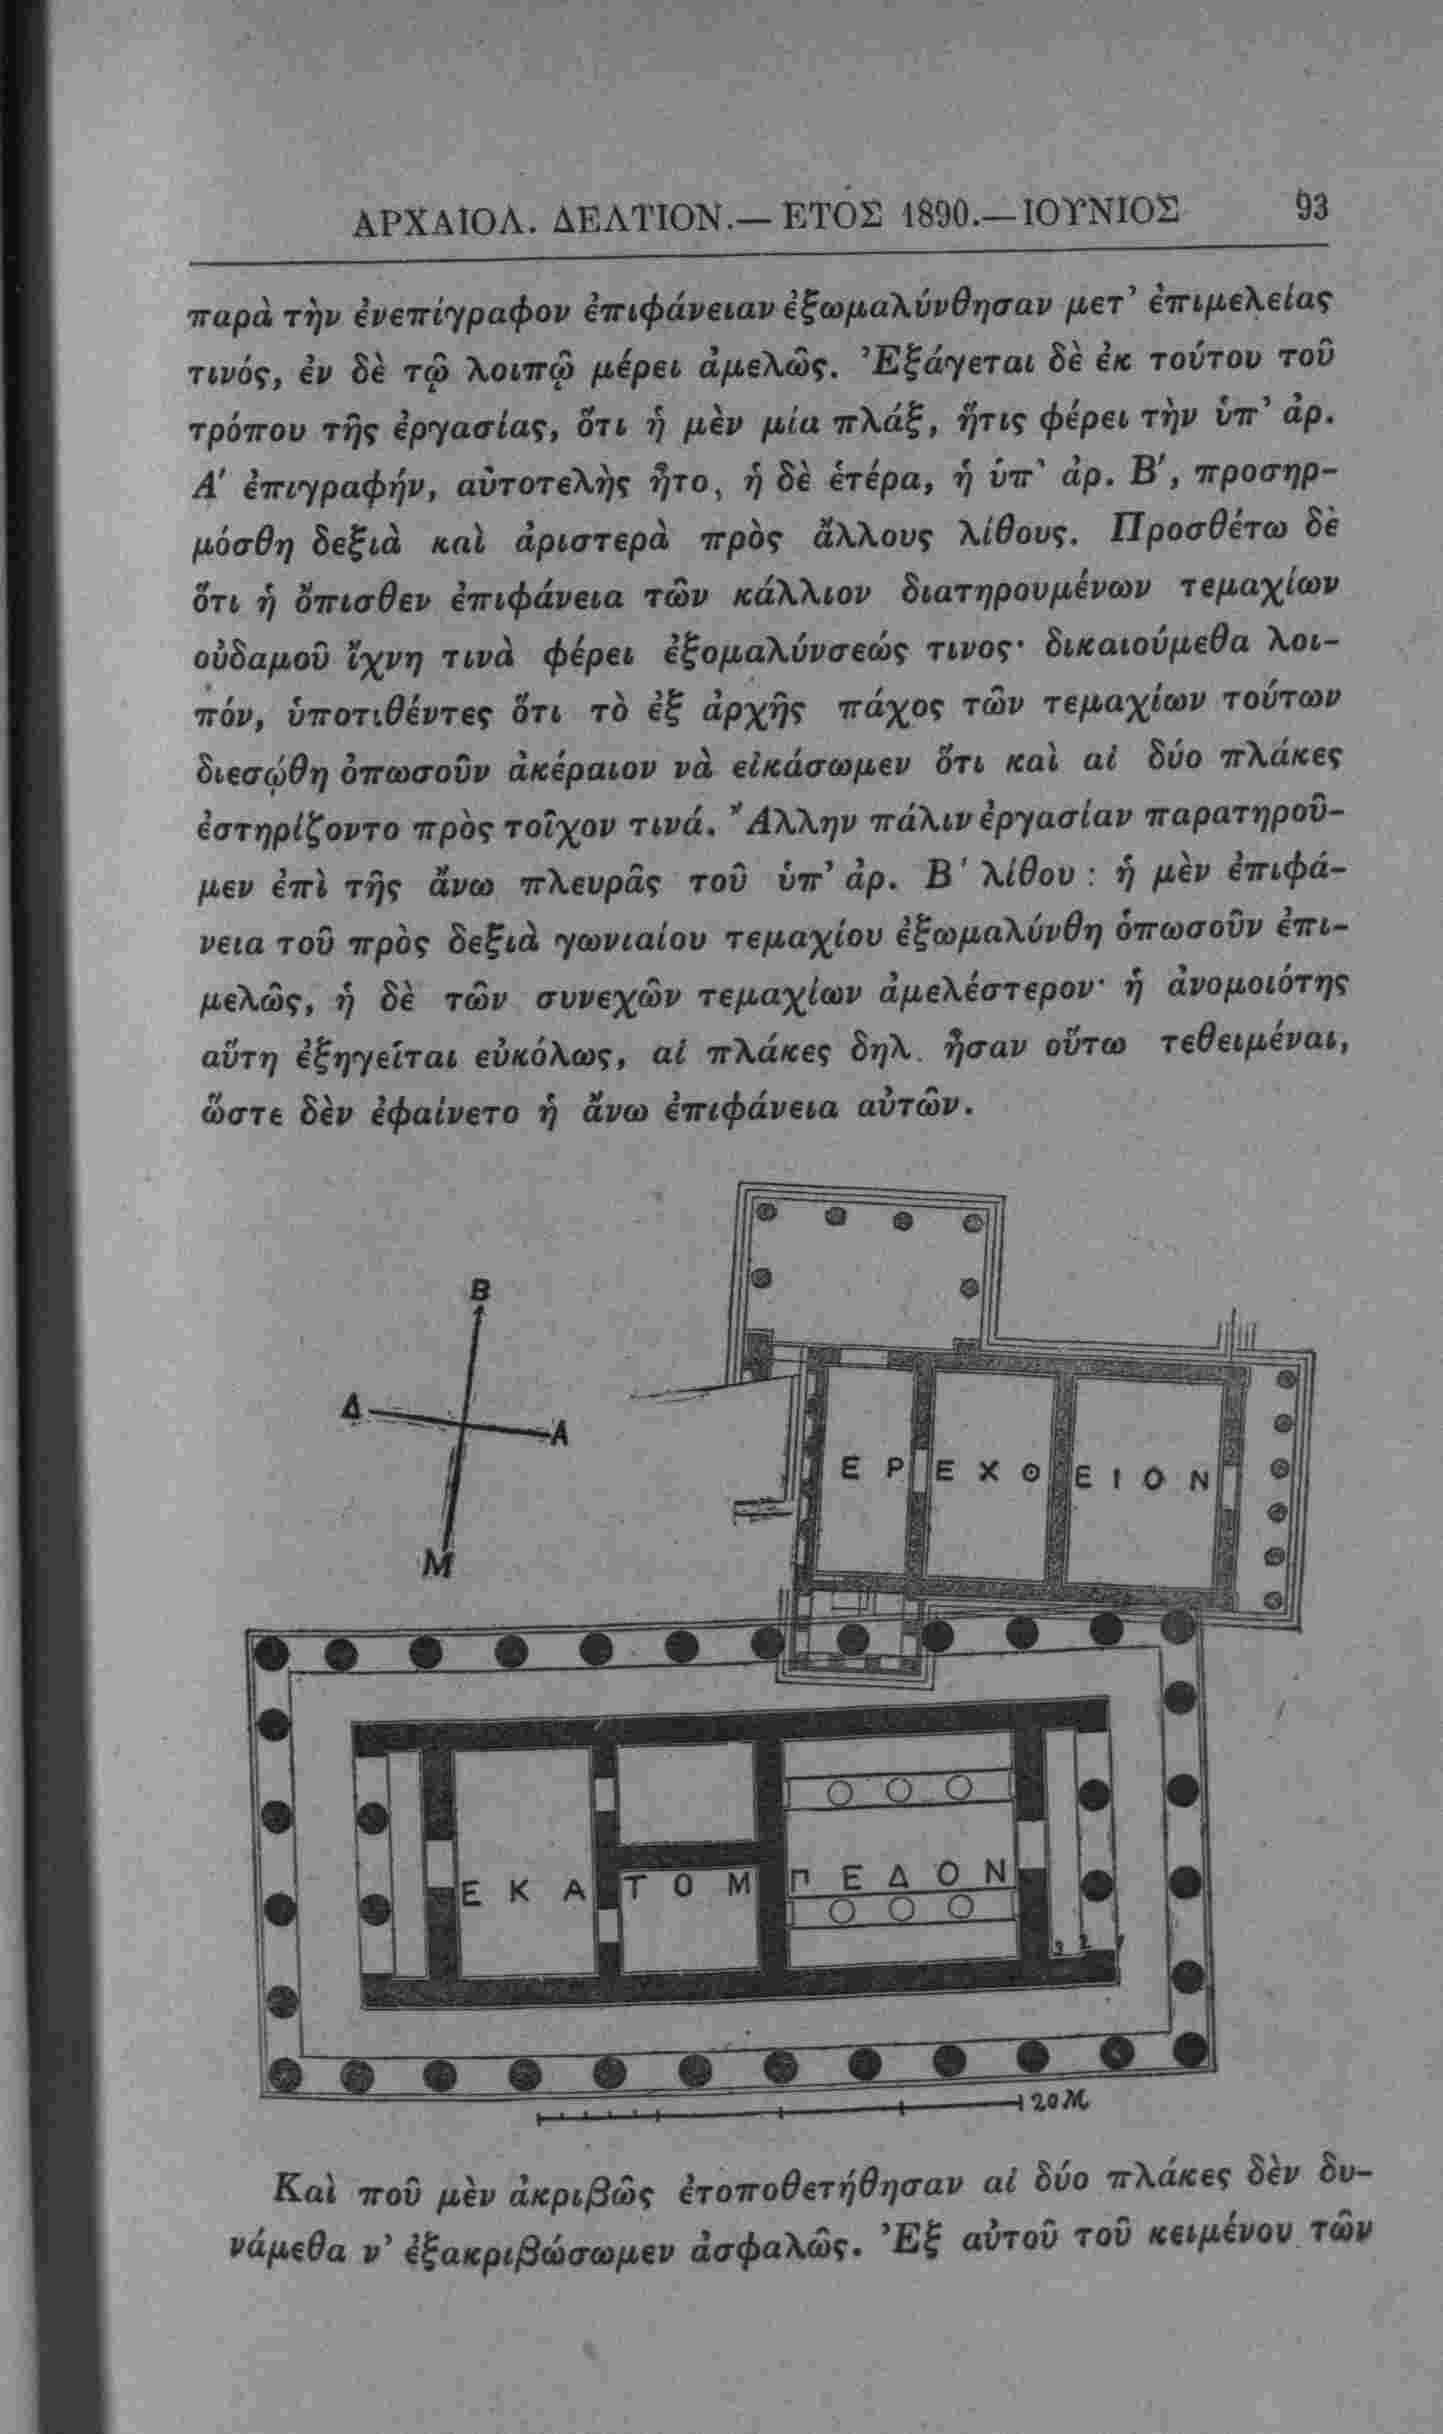 ΑΡΧΑΙΟΛ. ΔΕΛΤΙΟΝ.— ΕΤΟΣ 1890.— ΙΟΥΝΙΟΣ 93
παρὰ τὴν ἐνεπίγραφον ἐπιφάνειαν ἐξωμαλύνθησαν μετ’ ἐπιμελείας
τινός, ἐν δὲ τῷ λοιπῷ μέρει ἀμελῶς. Ἐξάγεται δὲ ἐκ τούτου τοῦ
τρόπου τῆς ἐργασίας, ὅτι ἡ μὲν μία πλάξ, ἥτις φέρει τὴν ὑπ’ ἀρ.
Α′ ἐπιγραφήν, αὐτοτελὴς ἦτο, ἡ δὲ ἑτέρα, ἡ ὑπ’ ἀρ. Β′, προσηρ-
μόσθη δεξιὰ καὶ ἀριστερὰ πρὸς ἄλλους λίθους. Προσθέτω δὲ
ὅτι ἡ ὄπισθεν ἐπιφάνεια τῶν κάλλιον διατηρουμένων τεμαχίων
οὐδαμοῦ ἴχνη τινὰ φέρει ἐξομαλύνσεώς τινος· δικαιούμεθα λοι-
πόν, ὑποτιθέντες ὅτι τὸ ἐξ ἀρχῆς πάχος τῶν τεμαχίων τούτων
διεσῴθη ὁπωσοῦν ἀκέραιον νὰ εἰκάσωμεν ὅτι καὶ αἱ δύο πλάκες
ἐστηρίζοντο πρὸς τοῖχον τινά. Ἄλλην πάλιν ἐργασίαν παρατηροῦ-
μεν ἐπὶ τῆς ἄνω πλευρᾶς τοῦ ὑπ’ ἀρ. Β′ λίθου : ἡ μὲν ἐπιφά-
νεια τοῦ πρὸς δεξιὰ γωνιαίου τεμαχίου ἐξωμαλύνθη ὁπωσοῦν ἐπι-
μελῶς, ἡ δὲ τῶν συνεχῶν τεμαχίων ἀμελέστερον· ἡ ἀνομοιότης
αὕτη ἐξηγεῖται εὐκόλως, αἱ πλάκες δηλ. ἦσαν οὕτω τεθειμέναι,
ὥστε δὲν ἐφαίνετο ἡ ἄνω ἐπιφάνεια αὐτῶν.
Β
Δ
Α
Μ
ΕΡΕΧΘΕΙΟΝ
ΕΚΑΤΟΜΠΕΔΟΝ
3 2 1
20 Μ
Καὶ ποῦ μὲν ἀκριβῶς ἐτοποθετήθησαν αἱ δύο πλάκες δὲν δυ-
νάμεθα ν’ ἐξακριβώσωμεν ἀσφαλῶς. Ἐξ αὐτοῦ τοῦ κειμένου τῶν